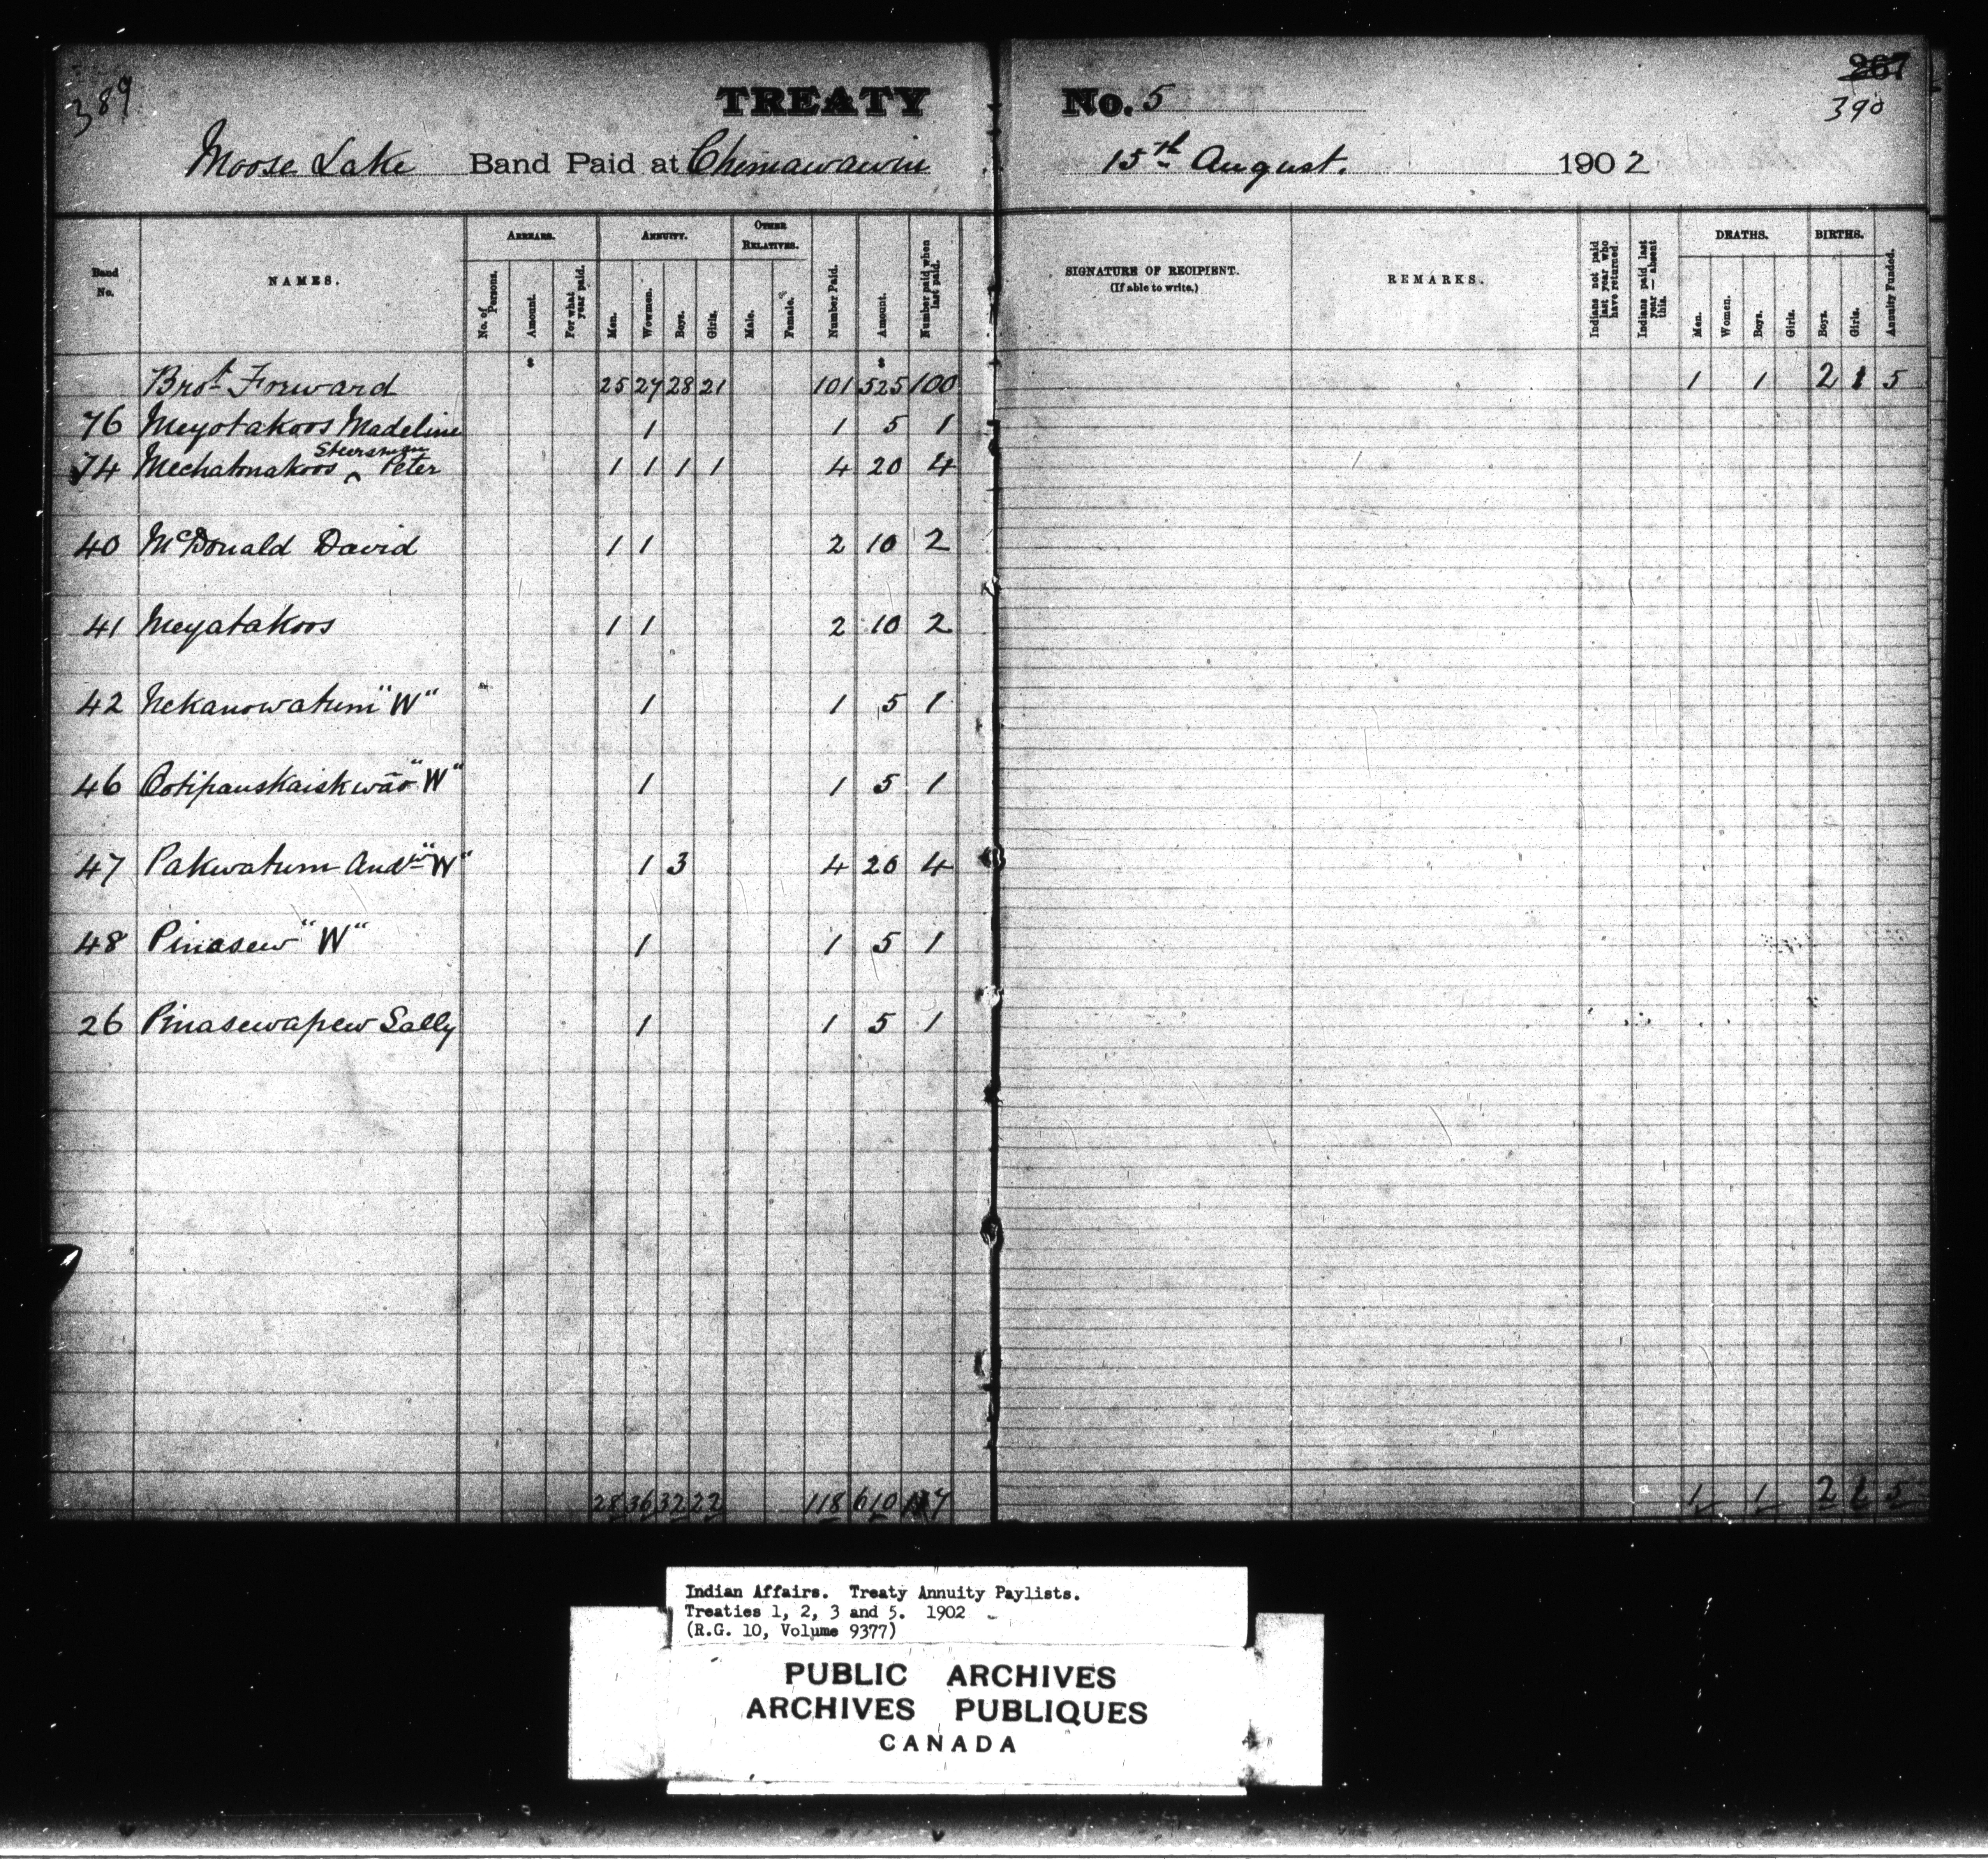 389
TREATY No. 5
267
390
Moose Lake Band Paid at Chemawawin 15th August. 1902
Band No.
NAMES.
ARREARS.
No. of Persons.
Amount.
For what year paid.
ANNUITY.
Men.
Wowmen.
Boys.
Girls.
OTHER RELATIVES.
Male.
Female.
Number Paid.
Amount.
Number paid when last paid.
SIGNATURE OF RECIPIENT.
(If able to write.)
REMARKS.
Indians not paid last year who have returned.
Indians paid last year — absent this.
DEATHS.
Men.
Women.
Boys.
Girls.
BIRTHS.
Boys.
Girls.
Annuity Funded.
$ $
Brot Forward 25 27 28 21 101 525 100 1 1 2 1 5
76 Meyotakoos Madeline 1 1 5 1
Steersman
74 Mechatonakoos ‸ Peter 1 1 1 1 4 20 4
40 McDonald David 1 1 2 10 2
41 Meyatakoos 1 1 2 10 2
42 Nekanowatum "W" 1 1 5 1
46 Ootipauskaiskwāo "W" 1 1 5 1
47 Pakwatum Andw "W" 1 3 4 20 4
48 Pinasew "W" 1 1 5 1
26 Pinasewapew Sally 1 1 5 1
28 36 32 22 118 610 117 1 1 2 1 5
Indian Affairs. Treaty Annuity Paylists.
Treaties 1, 2, 3 and 5. 1902
(R.G. 10, Volume 9377)
PUBLIC ARCHIVES
ARCHIVES PUBLIQUES
CANADA